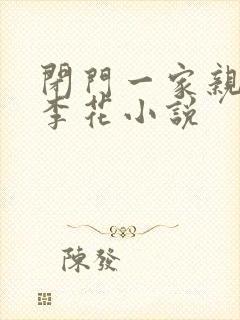 閉門一家親
李花小說
陳發